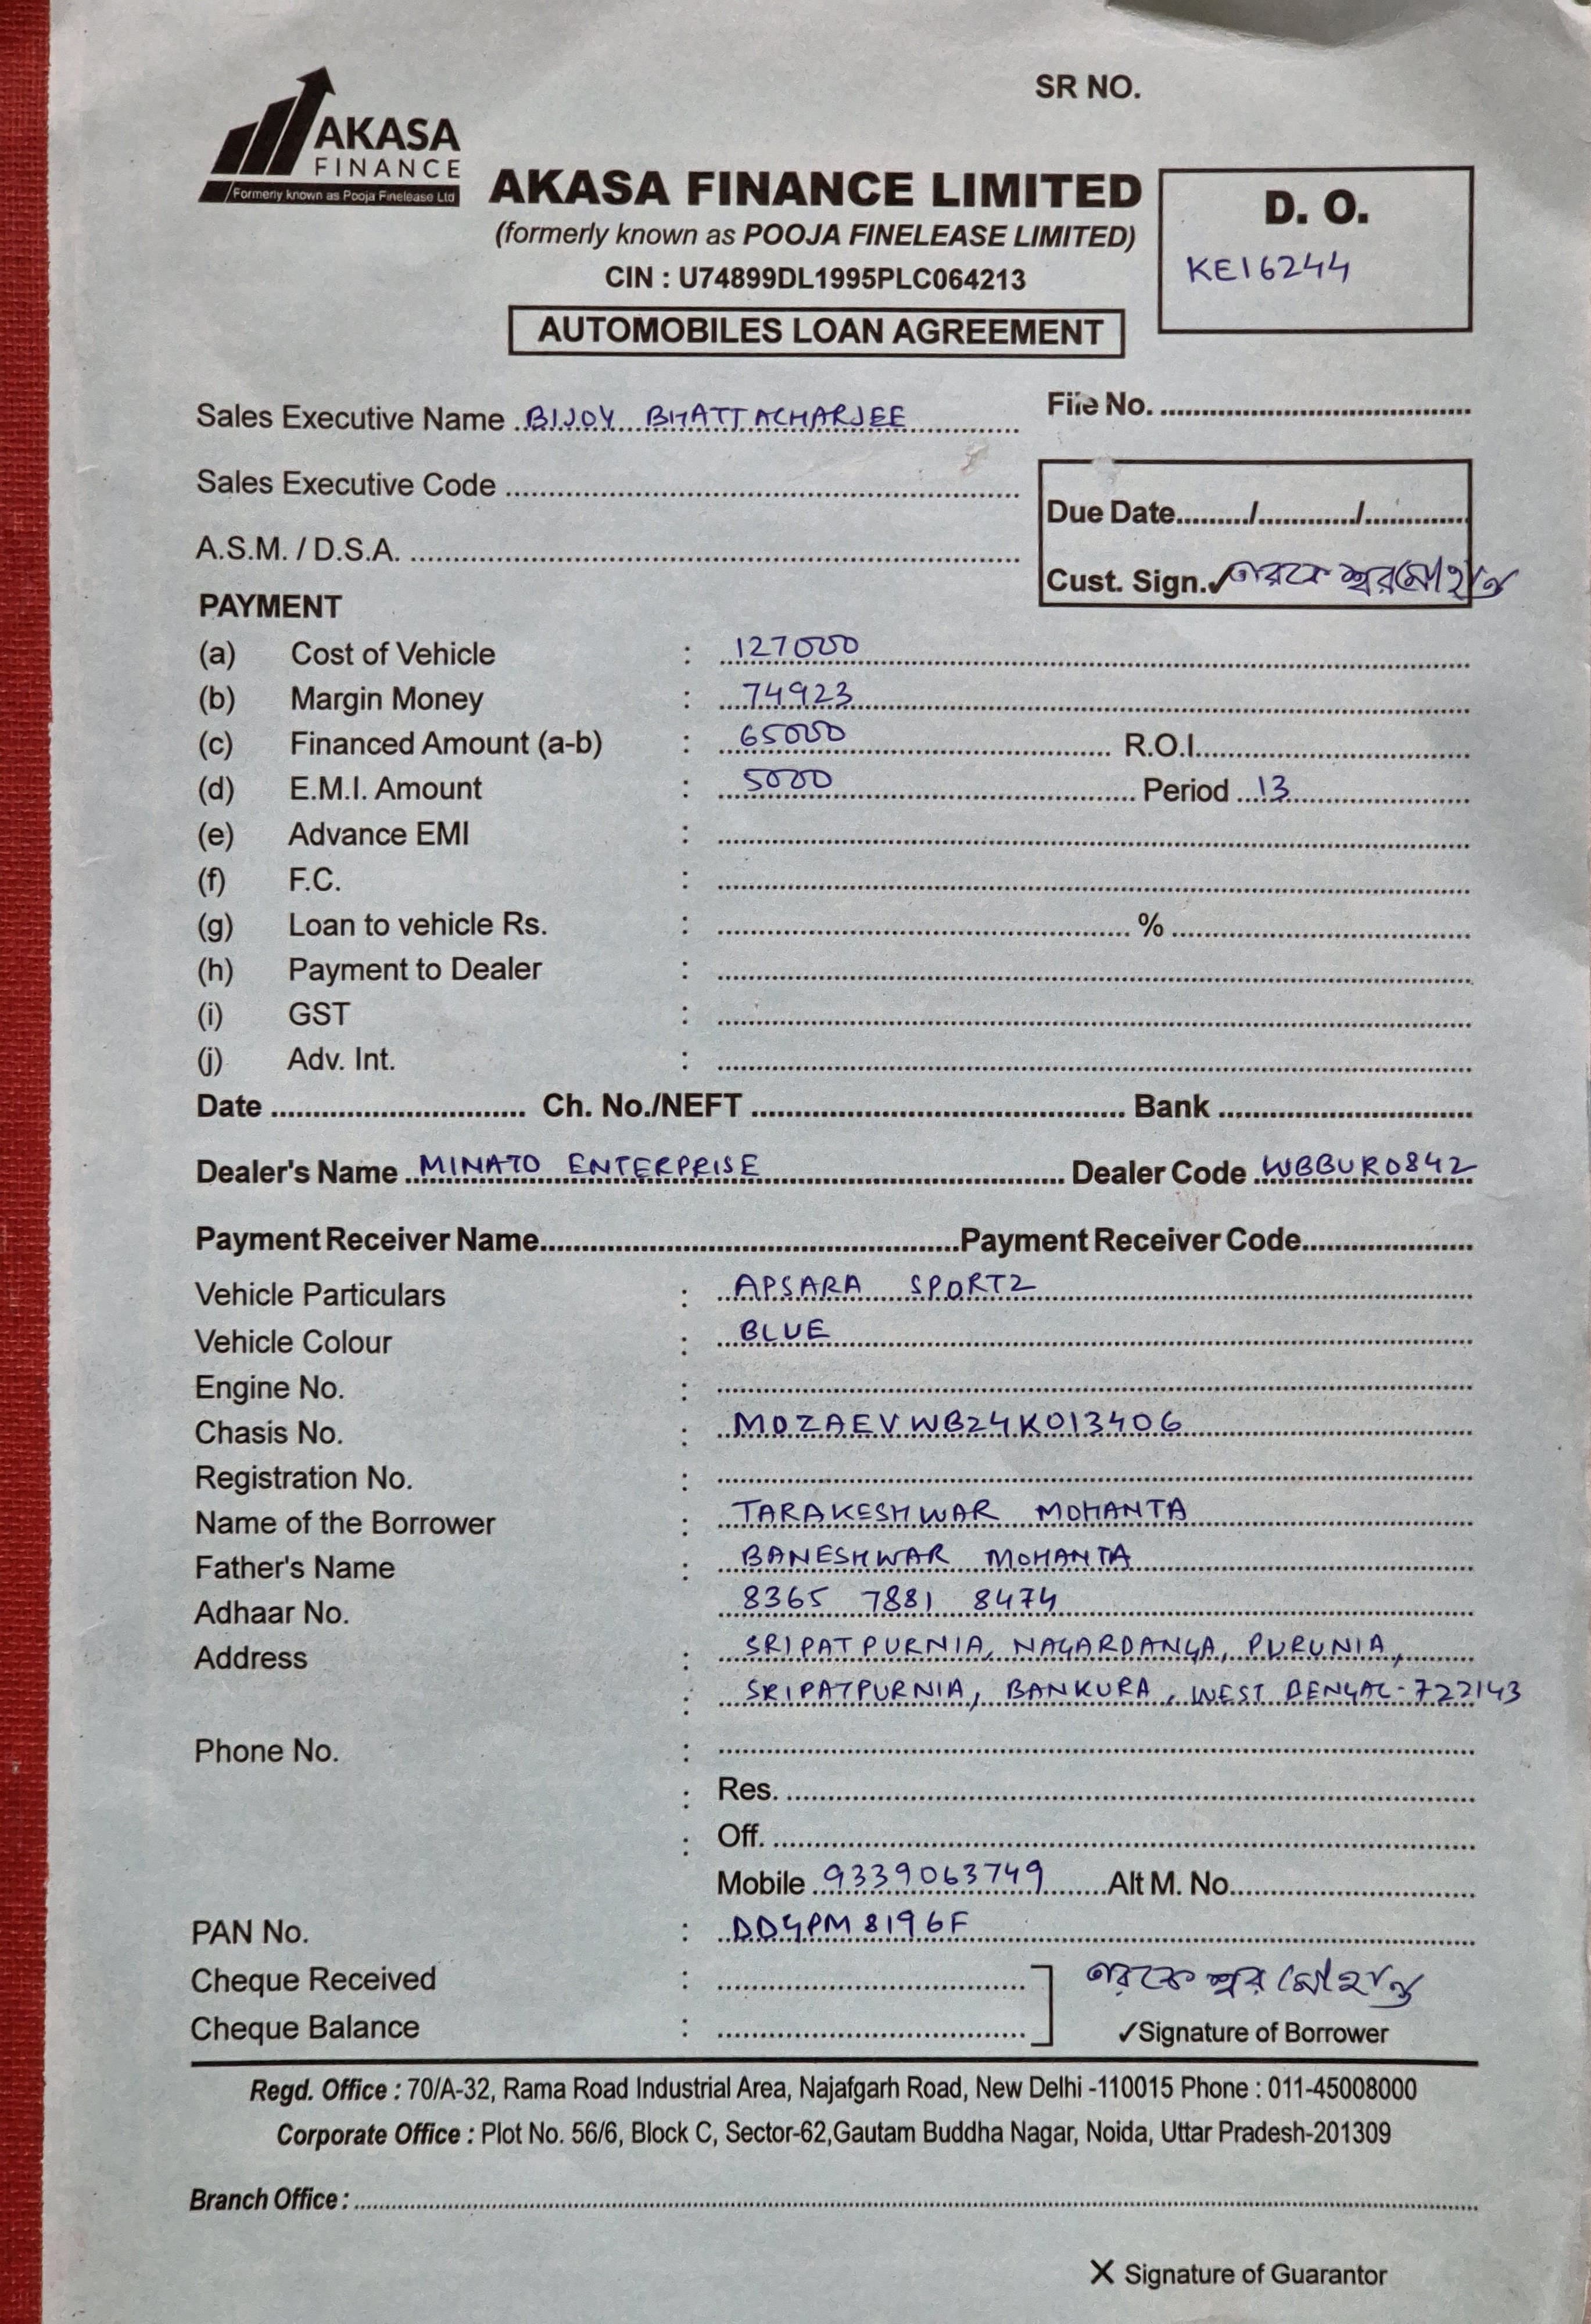 SR NO.
AKASA
FINANCE
Formerly known as Pooja Finelease Ltd
AKASA FINANCE LIMITED
(formerly known as POOJA FINELEASE LIMITED)
CIN : U74899DL1995PLC064213
AUTOMOBILES LOAN AGREEMENT
D. O.
KE16244
Sales Executive Name BIJOY BHATTACHARJEE
File No.
Sales Executive Code
Due Date / /
A.S.M. / D.S.A.
Cust. Sign. ✓ তারকেশ্বর মোহান্ত
PAYMENT
(a) Cost of Vehicle : 127000
(b) Margin Money : 74923
(c) Financed Amount (a-b) : 65000 R.O.I.
(d) E.M.I. Amount : 5000 Period 13
(e) Advance EMI :
(f) F.C. :
(g) Loan to vehicle Rs. : %
(h) Payment to Dealer :
(i) GST :
(j) Adv. Int. :
Date Ch. No./NEFT Bank
Dealer's Name MINATO ENTERPRISE Dealer Code WBBUR0842
Payment Receiver Name Payment Receiver Code
Vehicle Particulars : APSARA SPORTZ
Vehicle Colour : BLUE
Engine No. :
Chasis No. : MDZAEVWB24K013406
Registration No. :
Name of the Borrower : TARAKESHWAR MOHANTA
Father's Name : BANESHWAR MOHANTA
Adhaar No. 8365 7881 8474
Address : SRIPATPURNIA, NAGARDANGA, PURUNIA,
: SRIPATPURNIA, BANKURA, WEST BENGAL-722143
Phone No. :
: Res.
: Off.
Mobile 9339063749 Alt M. No.
PAN No. : DDGPM8196F
Cheque Received : তারকেশ্বর মোহান্ত
Cheque Balance : ✓Signature of Borrower
Regd. Office : 70/A-32, Rama Road Industrial Area, Najafgarh Road, New Delhi -110015 Phone : 011-45008000
Corporate Office : Plot No. 56/6, Block C, Sector-62,Gautam Buddha Nagar, Noida, Uttar Pradesh-201309
Branch Office :
X Signature of Guarantor